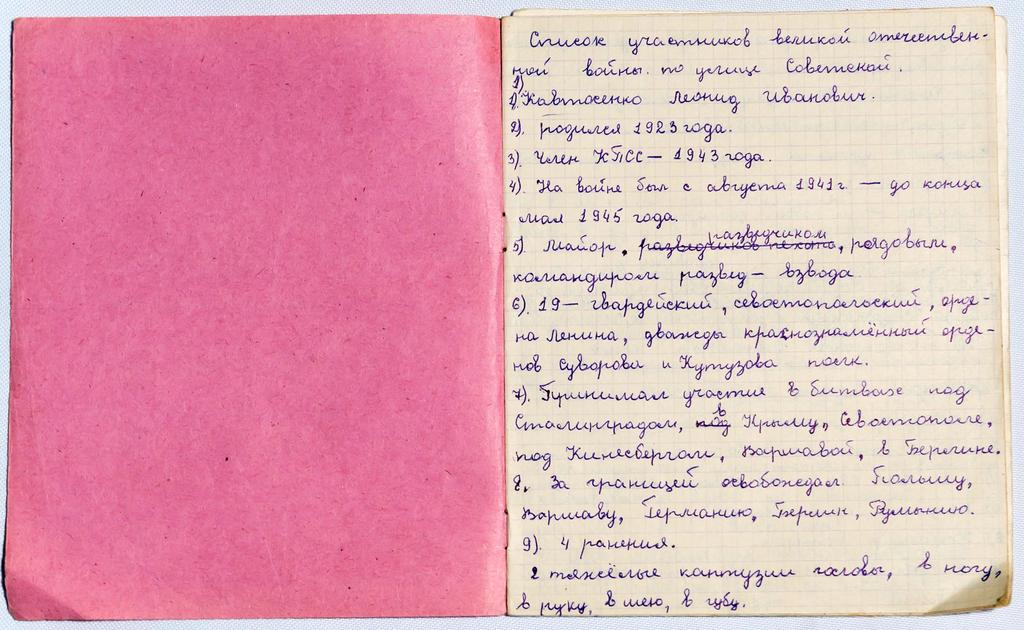 Список участников великой отечествен-
ной войны по улице Советской.
1)
1). Кавтосенко Леонид Иванович.
2). родился 1923 года.
3). Член КПСС — 1943 года.
4). На войне был с августа 1941 г. — до конца
мая 1945 года.
разведчиком
5). Майор, разведчиков пехота, рядовым,
командиром развед – взвода
6). 19 — гвардейский, севостопольский, орде-
на Ленина, дважды краснознамённый орде-
нов Суворова и Кутузова полк.
7). Принимал участие в битвах под
в
Сталинградом, под Крыму, Севостополе,
под Кинесбергом, Варшавой, в Берлине.
8. За границей освобождал Польшу,
Варшаву, Германию, Берлин, Румынию.
9). 4 ранения.
2 тяжёлые кантузии головы, в ногу,
в руку, в шею, в губу.